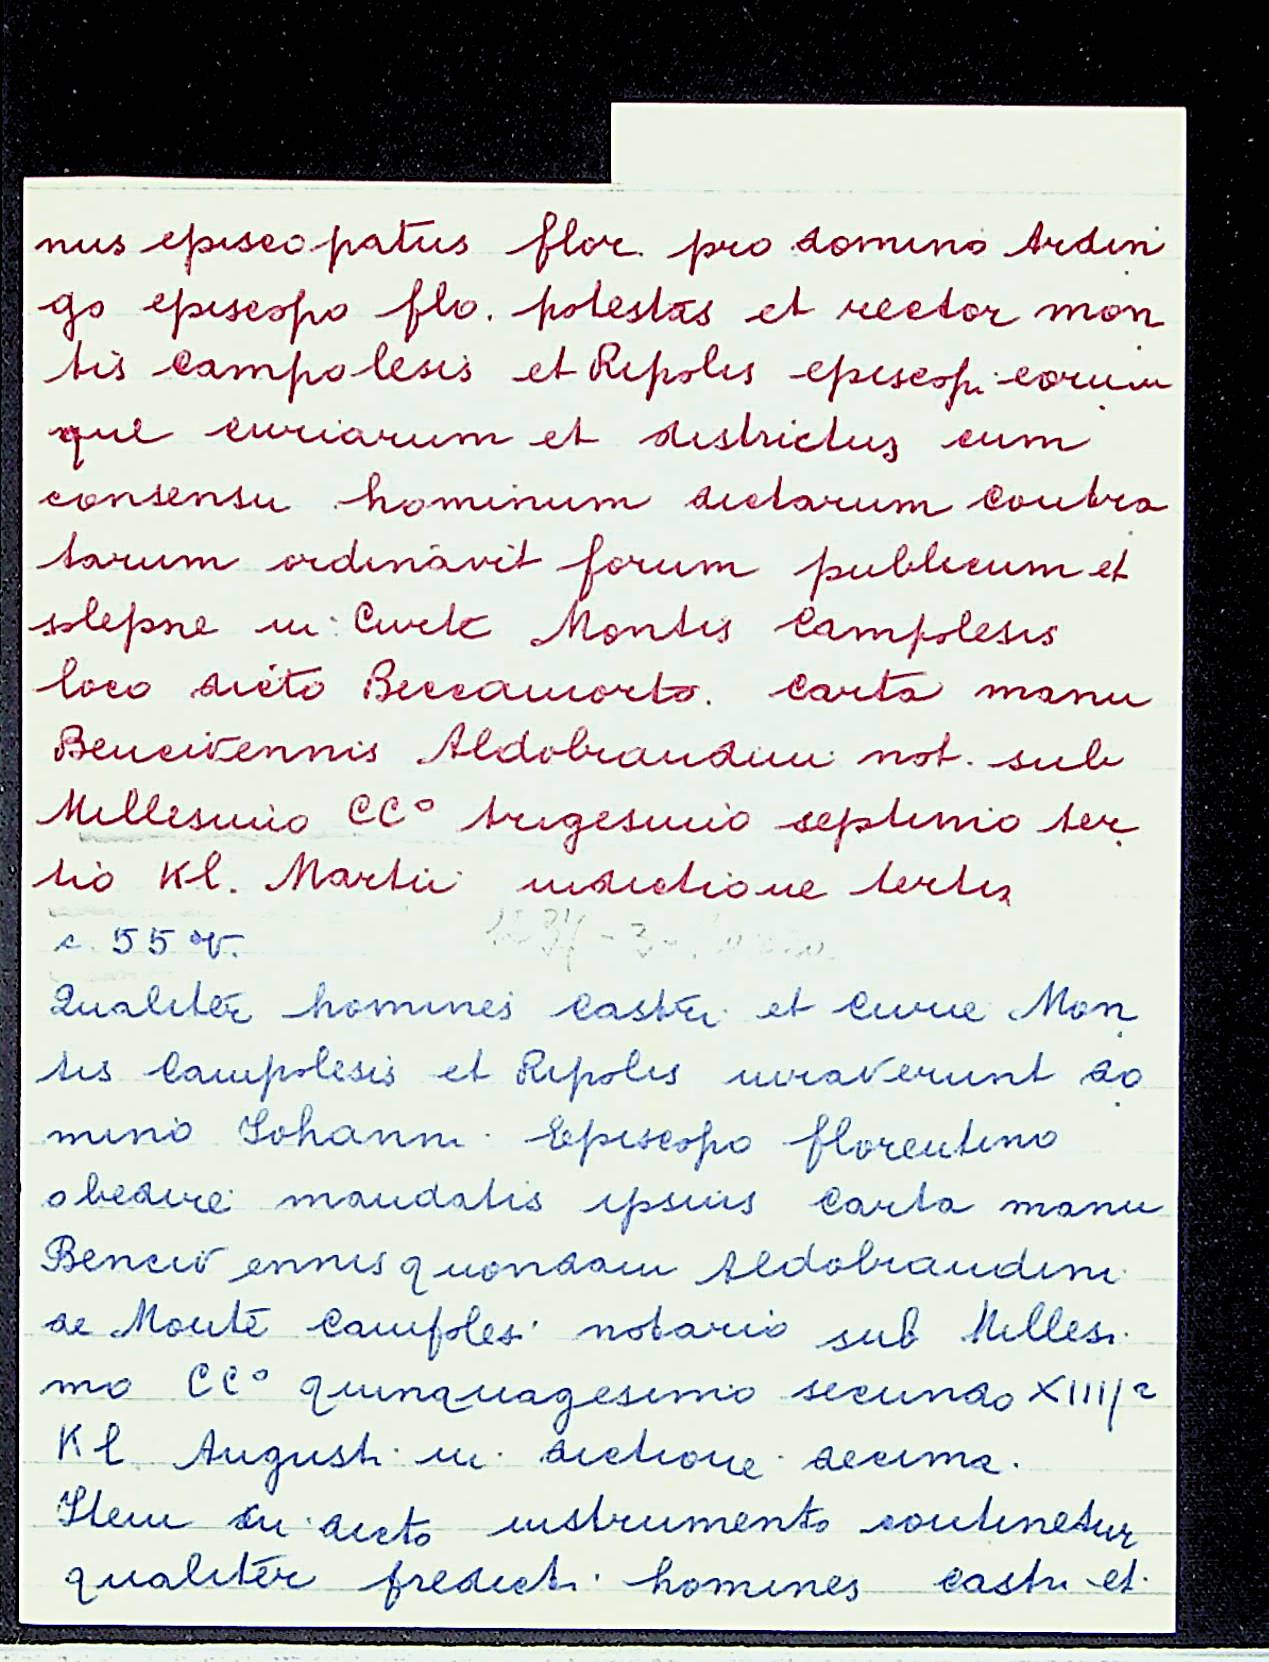 nus episcopatus flor. pro domino Ardin
go episcopo flo. potestas et rector mon
tis Campolesis et Ripolis episcopi eorum
que curiarum et districtus cum
consensu hominum dictarum contra
tarum ordinavit forum publicum et
solepne in Curte Montis Campolesis
loco dicto Beccamorto. Carta manu
Bencivennis Aldobrandini not. sub
Millesimo CC° trigesimo septimo ter
tio Kl. Martii indictione tertia
c. 55 v. 1237-3-
Qualiter homines castri et Curie Mon
tis Campolesis et Ripolis iuraverunt do
mino Iohanni Episcopo florentino
obedire mandatis ipsius Carta manu
Bencivennis quondam Aldobrandini
de Monte Campolesi notario sub Millesi
mo CC° quinquagesimo secundo XIII
Kl. Augusti in dictione decima.
Item in dicto instrumento continetur
qualiter predicti homines castri et